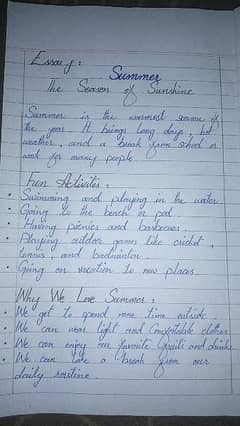 Essay:
Summer
The Season of Sunshine
Summer is the warmest season of
the year. It brings long days, hot
weather, and a break from school or
work for many people.
Fun Activites:
• Swimming and playing in the water
• Going to the beach or pool.
• Having picnics and barbecues.
• Playing outdoor games like cricket,
tennis, and badminton.
• Going on vacation to new places.
Why We Love Summer:
• We get to spend more time outside.
• We can wear light and Comfortable clothes
• We can enjoy our favorite fruits and drinks
• We can take a break from our
daily routine.